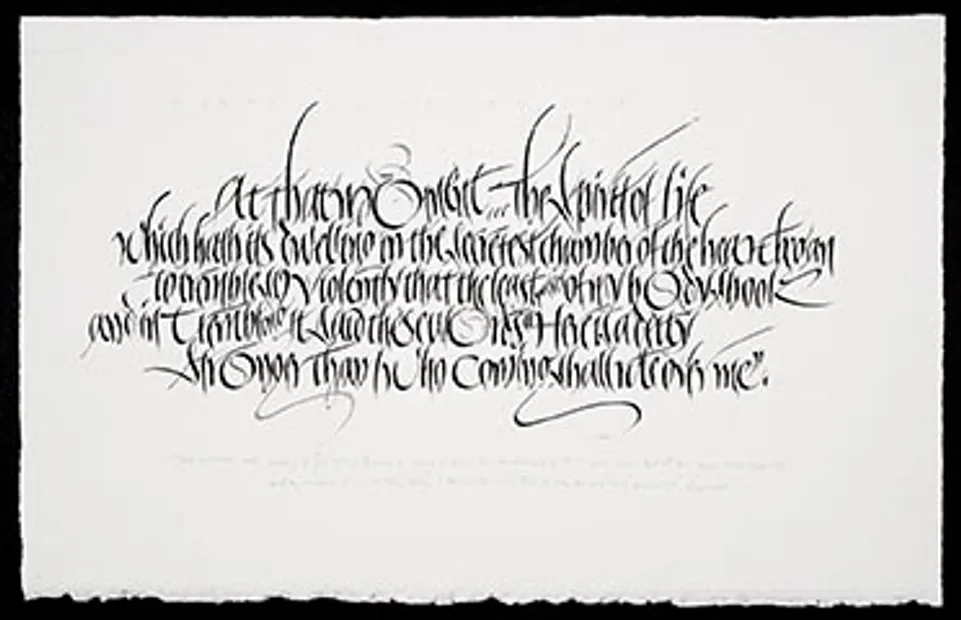 At that moment... the spirit of life
which hath its dwelling in the secretest chamber of the heart began
to tremble so violently that the least of my body shook
and in trembling it said these words "Here is a deity
stronger than I who coming shall rule over me".